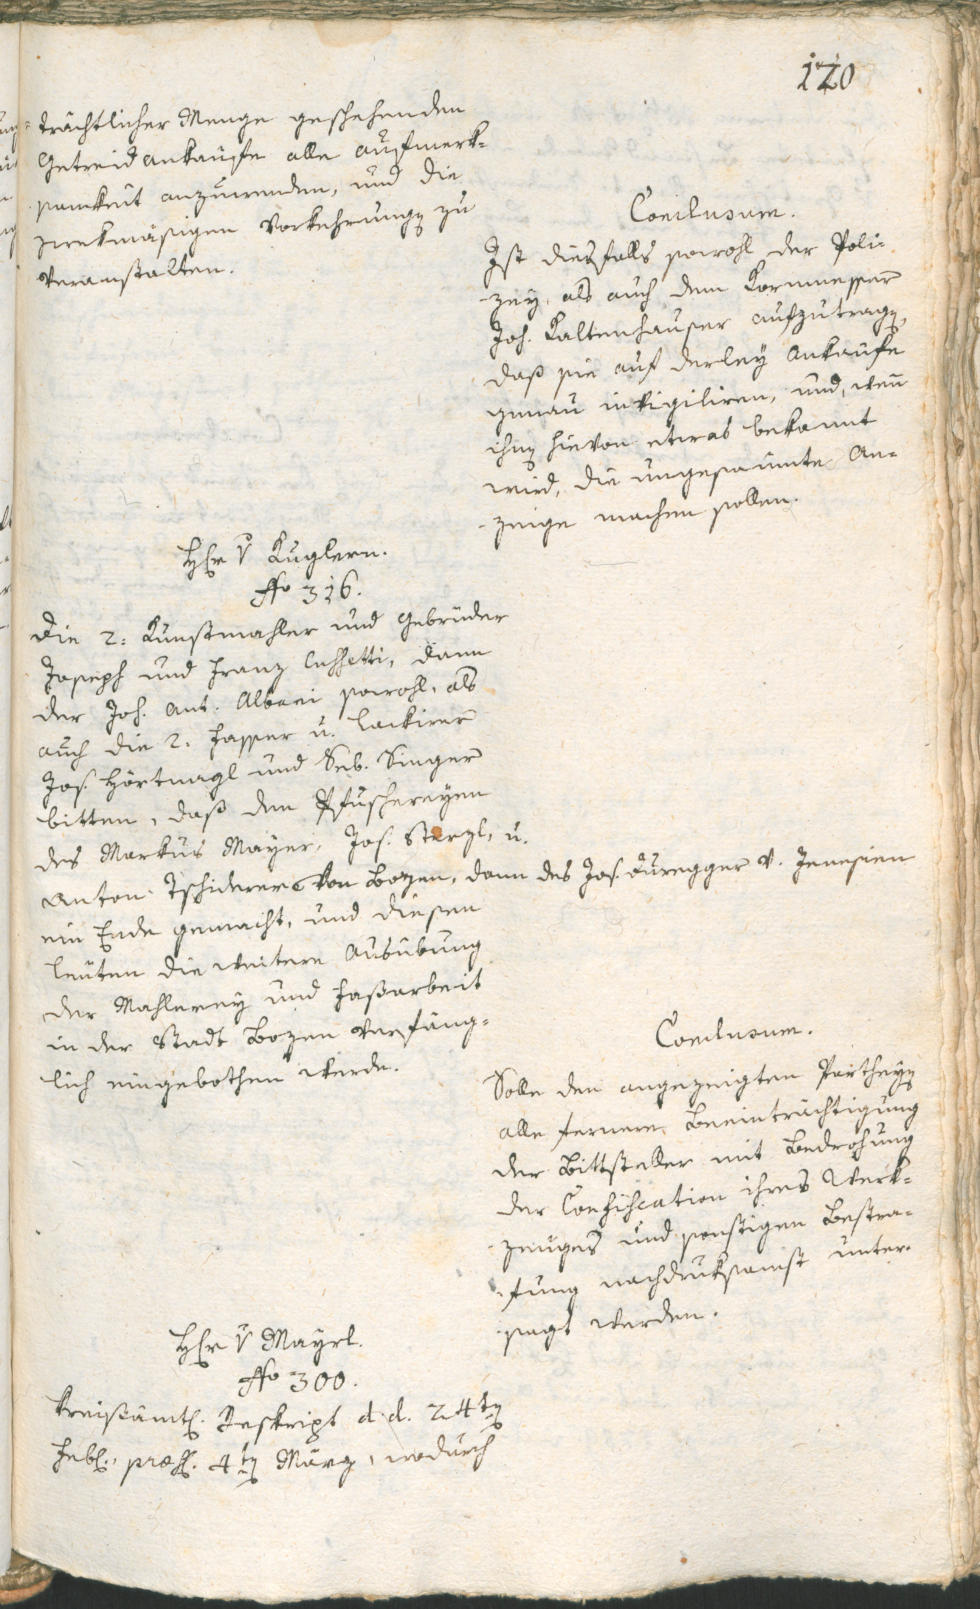 120
trächtlicher Menge geschehenden
Getreid Ankäufe alle Aufmerk-
samkeit anzuwenden, und die
zwekmäsigen Vorkehrungen zu
veranstalten.
Conclusum.
Ist diesfalls sowohl der Poli-
zey, als auch dem Kornmesser
Joh. Kaltenhauser aufzutragen,
daß sie auf derley Ankäufe
genau invigiliren, und, wenn
ihnen hievon etwas bekannt
wird, die ungesäumte An-
zeige machen sollen.
Herr v Kuglern.
No 316.
Die 2: Kunstmahler und Gebrüder
Joseph und Franz Cusseti, dann
der Joh. Ant. Albani sowohl, als
auch die 2. Fasser u. Lackirer
Jos. Hörtnagl und Seb. Singer
bitten, daß den Pfuschereyen
des Markus Mayer, Jos. Stergl, u.
Anton Tschiderer von Bozen, dann des Jos. Düregger v. Jenesien
ein Ende gemacht, und diesen
Leuten die weitere Ausübung
der Mahlerey und Faßarbeit
in der Stadt Bozen verfäng-
lich eingebothen werde.
Conclusum.
Solle den angezeigten Partheyen
alle fernere Beeinträchtigung
der Bittsteller mit Bedrohung
der Confiscation ihres Werk-
zeuges und sonstigen Bestra-
fung nachdruksamst unter-
sagt werden.
Herr v Mayrl.
No 300.
Kreisämtl. Reskript d. d. 24ten
Febr., præs. 4ten März, wodurch